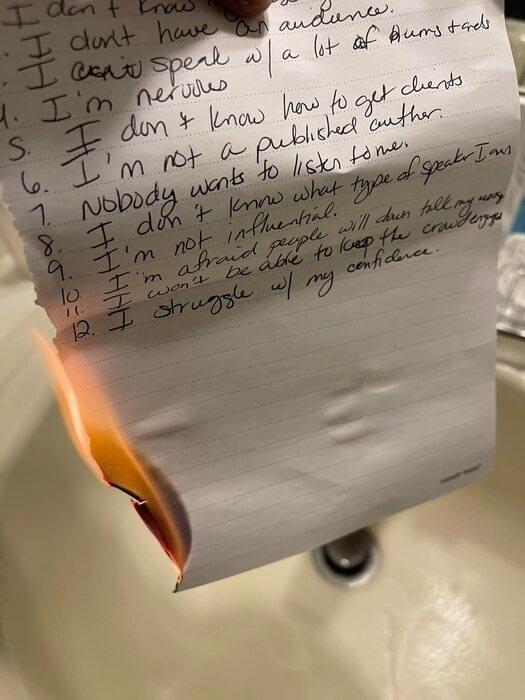 I don't know
. I don't have an audience.
. I can't speak w/ a lot of
4. I'm nervous
5. I don't know how to get clients
6. I'm not a published author.
7. Nobody wants to listen to me.
8. I don't know what type of speaker I am
9. I'm not influential.
10. I'm afraid people will down talk my
11. I won't be able to keep the crowd engage
12. I struggle w/ my confidence.